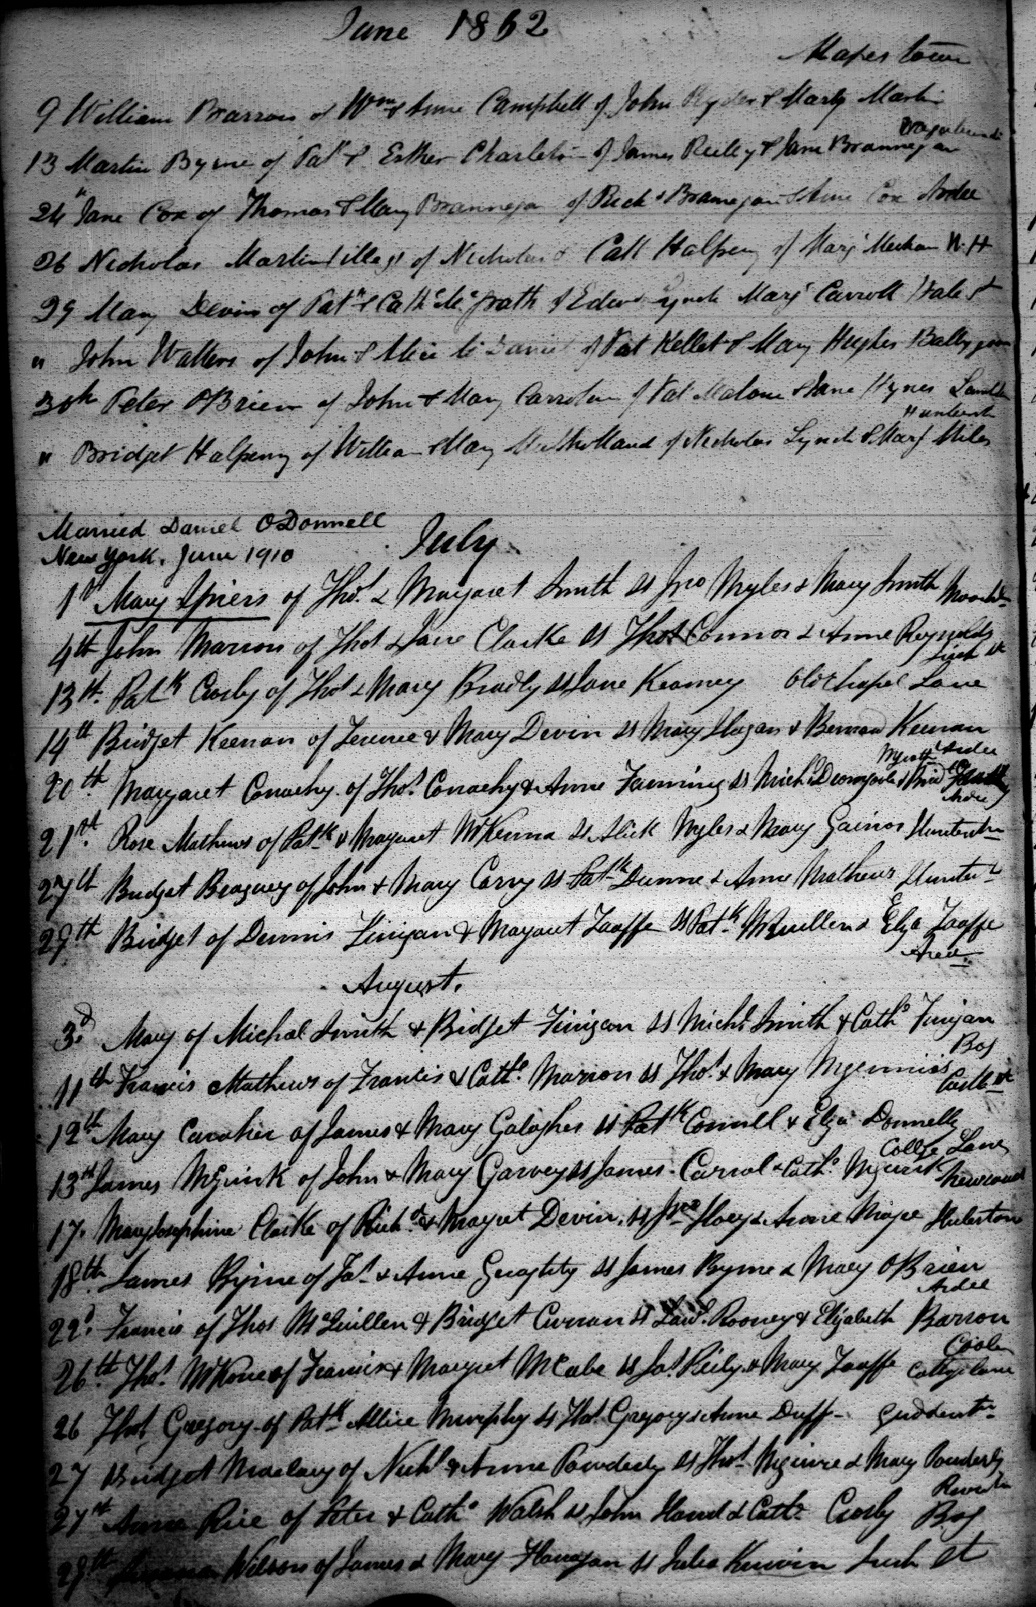 June 1862
Mapes town
9 William Barron of Wm & Anne Campbell of John Ryder & Marg Martin
13 Martin Byrne of Patk & Esther Charleton of James Reilly & Jane Brannegan
24th Jane Cox of Thomas & Mary Brannegan of Richd Brannegan & Anne Cox Ardee
26 Nicholas Martin illegt of Nicholas & Cath Halpeny of Marj Meehan W. H
29 Mary Devin of Patk & Cathe McGrath of Edwd Lynch Marj Carroll Hale St
" John Watters of John & Alice of Pat Kellet & Mary Hughes
30th Peter OBrien of John & Mary of Pat Malone & Jane Hynes
" Bridget Halpeny of William & Mary of Nicholas Lynch & Marj Miles
Married Daniel O'Donnell
New York, June 1910
July
1st Mary Spiers of Thos. & Margaret Smith Ss Jno Myles & Mary Smith
4th John Marron of Thos & Jane Clarke Ss Thos Connor & Anne Reynolds
13th. Patk Crosby of Thos & Mary Brady Ss Jane Kearney Old Chapel Lane
14th Bridget Keenan of Terence & Mary Devin Ss Mary Hagan & Bernard Keenan
Ardee
20th Margaret Conachy of Thos. Conachy & Anne Fanning Ss Michl
Ardee
21st. Rose Mathews of Patk & Margaret McKenna Ss Alick Myles & Mary Gainor
27th Bridget Beaguey of John & Mary Corry Ss Patk Dunne & Anne Mathews
29th Bridget of Dennis Finigan & Margaret Taaffe Ss Patk McQuillen & Eliza Taaffe
Ardee.
August.
3d. Mary of Michael Smith & Bridget Finigan Ss Michl Smith & Cathe Finigan
Bog
11th Francis Mathews of Francis & Cathe Marron Ss Thos. & Mary Mcginnis
Castle St
12th Mary Cavaher of James & Mary Galagher Ss Patk Connell & Eliza Donnelly
College Lane
13th James McGurk of John & Mary Garvey Ss James Carrol & Cathe McGurk
17. Mary Josephine Clarke of Richd & Margret Devin, Ss Jno Hoey & Anne Magee
18th James Byrne of Jas & Anne Geraghty Ss James Byrne & Mary OBrien
Ardee
22d. Francis of Thos McQuillen & Bridget Curran Ss Lawr. Rooney & Elizabeth Barron
26th Thos. McKone of Francis & Margret McCabe Ss Jas Reily & Mary Taaffe
26 Thos Gregory of Patk Allice Murphy Ss Thos Gregory & Anne Duff
27 Bridget of Nichs & Anne Powderly Ss Thos McGuire & Mary Powderly
27th Anne Rice of Peter & Cathe Walsh Ss John Hand & Cathe Crosby Bog
29th Wilson of James & Mary Flanagan Ss Julia Kerwin Irish St